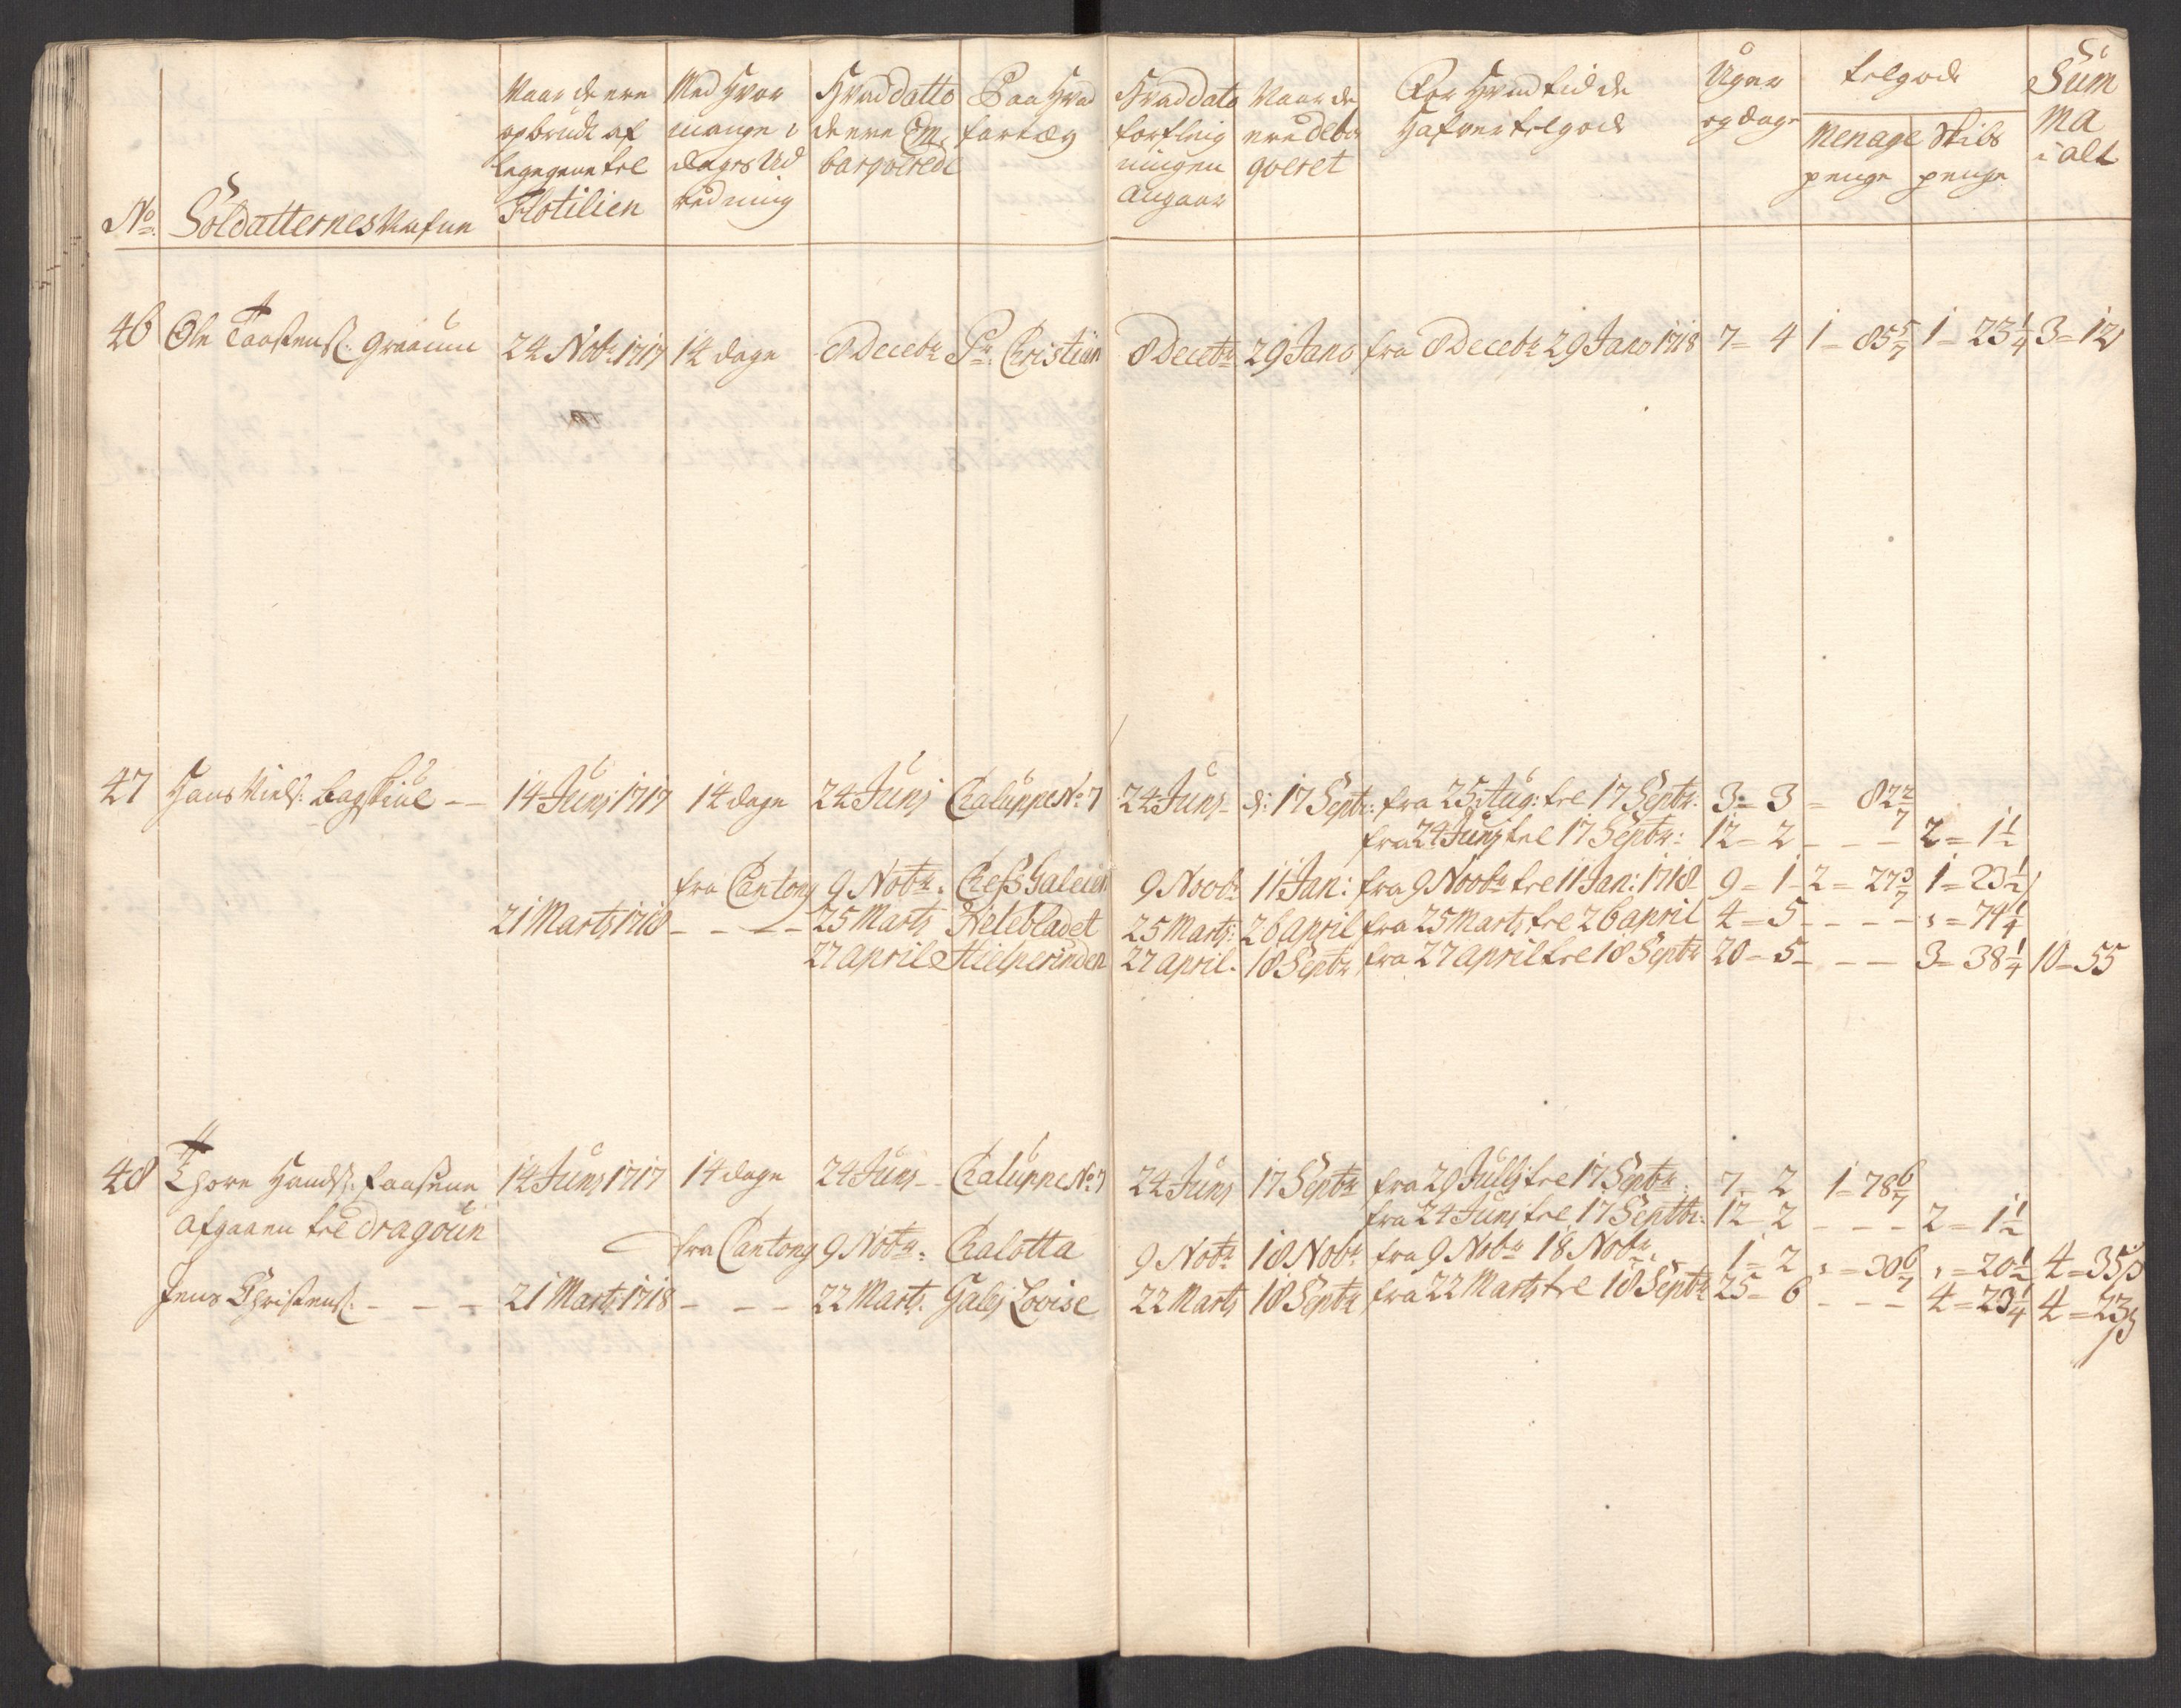 No. Soldatternes Nafne
Naar de ere opbrudt af legegene til Flotilien
Med Hvor mange dages Udredning
Hvad datto de ere Embarqverede
Paa Hvad fartøy
Hvad dato forfleigningen Angaar
Naar de ere debarqveret
For Hvad tid de Hafver tilgode
Uger og dage
tilgode
Menage penge
Skibs penge
Summa i alt
46 Ole Taastens: Graaum 24 Nobr. 1717 14 dage 8 Decebr Pr: Christian 8 Decebr 29 Jano fra 8 Decebr 29 Jano 1718 7 = 4 1 = 85 5/7 1 = 23 1/4 3 = 12
47 Hans Niels: Bagskiul -- 14 Junj 1717 14 dage 24 Junj Chaluppe No: 7 24 Junj - d: 17 Septr: fra 25 Aug: til 17 Septr: 3 = 3 = 82 2/7
fra 24 Junj til 17 Septr: 12 = 2 - - - 2 = 1 1/2
fra Cantong 9 Nobr. Chefs Galeien 9 Noobr 11 Jan: fra 9 Noobr til 11 Jan: 1718 9 = 1 - 2 = 27 3/7 1 = 23 1/4
21 Martj 1718 - - - 25 Martj Helebladet 25 Martj: 26 april fra 25 Martj til 26 april 4 = 5 - - - , = 74 1/4
27 april Hielperinden 27 april. 18 Septr fra 27 april til 18 Septr 20 = 5 - - - 3 = 38 1/4 10 = 55
48 Thore Hands: faasene 14 Junj 1717 14 dage 24 Junj - Chaluppe No: 7 24 Junj 17 Septr fra 29 Julij til 17 Septr: 7 = 2 1 = 78 6/7
Afgaaen til Dragoun fra 24 Junj til 17 Septbr: 12 = 2 - - - 2 = 1 1/2
fra Cantong 9 Nobr. Chalotta 9 Nobr 18 Nobr. fra 9 Nobr 18 Nobr. 1 = 2 , = 30 6/7 , = 20 1/2 4 = 35 ß
Jens Christens: - - - 21 Martj 1718 - - - 22 Martj. Galej Lovise 22 Martj 18 Septr fra 22 Martj til 18 Septr 25 = 6 - - - 4 = 23 1/4 4 = 23 ß